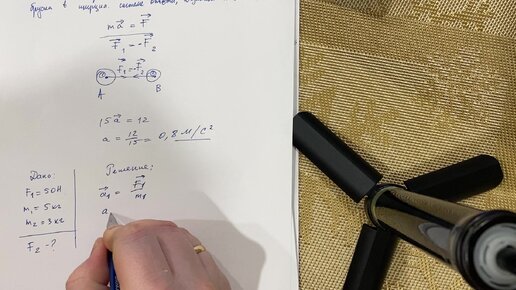 бруска в инерциальной системе отсчёта,
mα⃗ = F⃗
F⃗₁ = -F⃗₂
F⃗₁=-F⃗₂
A B
15a⃗ = 12
a = 12/15 = 0,8 м/с²
Дано:
F₁ = 50H
m₁ = 5кг
m₂ = 3кг
F₂ -?
Решение:
a⃗₁ = F⃗₁/m₁
a